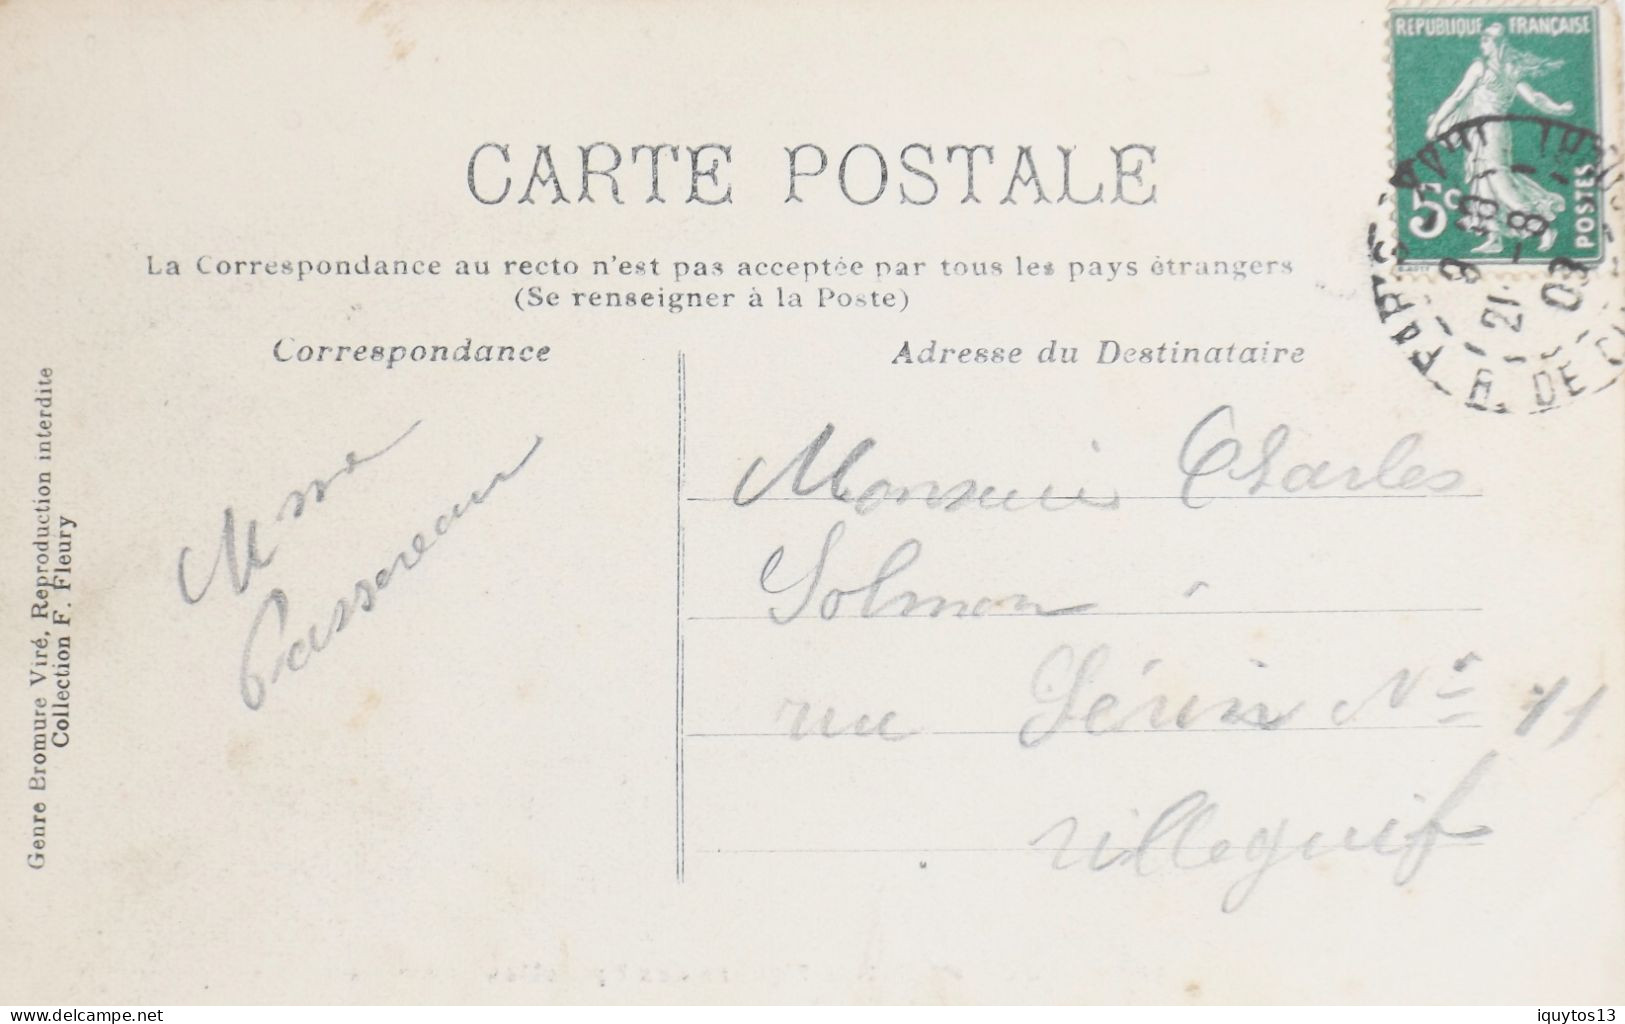 REPUBLIQUE FRANÇAISE
5c
POSTES
9 30
21-8
PARIS
R. DE
CARTE POSTALE
La Correspondance au recto n'est pas acceptée par tous les pays étrangers
(Se renseigner à la Poste)
Correspondance
Adresse du Destinataire
Mme
Passereau
Monsieur Charles
Solmon
rue No 11
Villeguif
Genre Bromure Viré, Reproduction interdite
Collection F. Fleury
www.delcampe.net
iquytos13